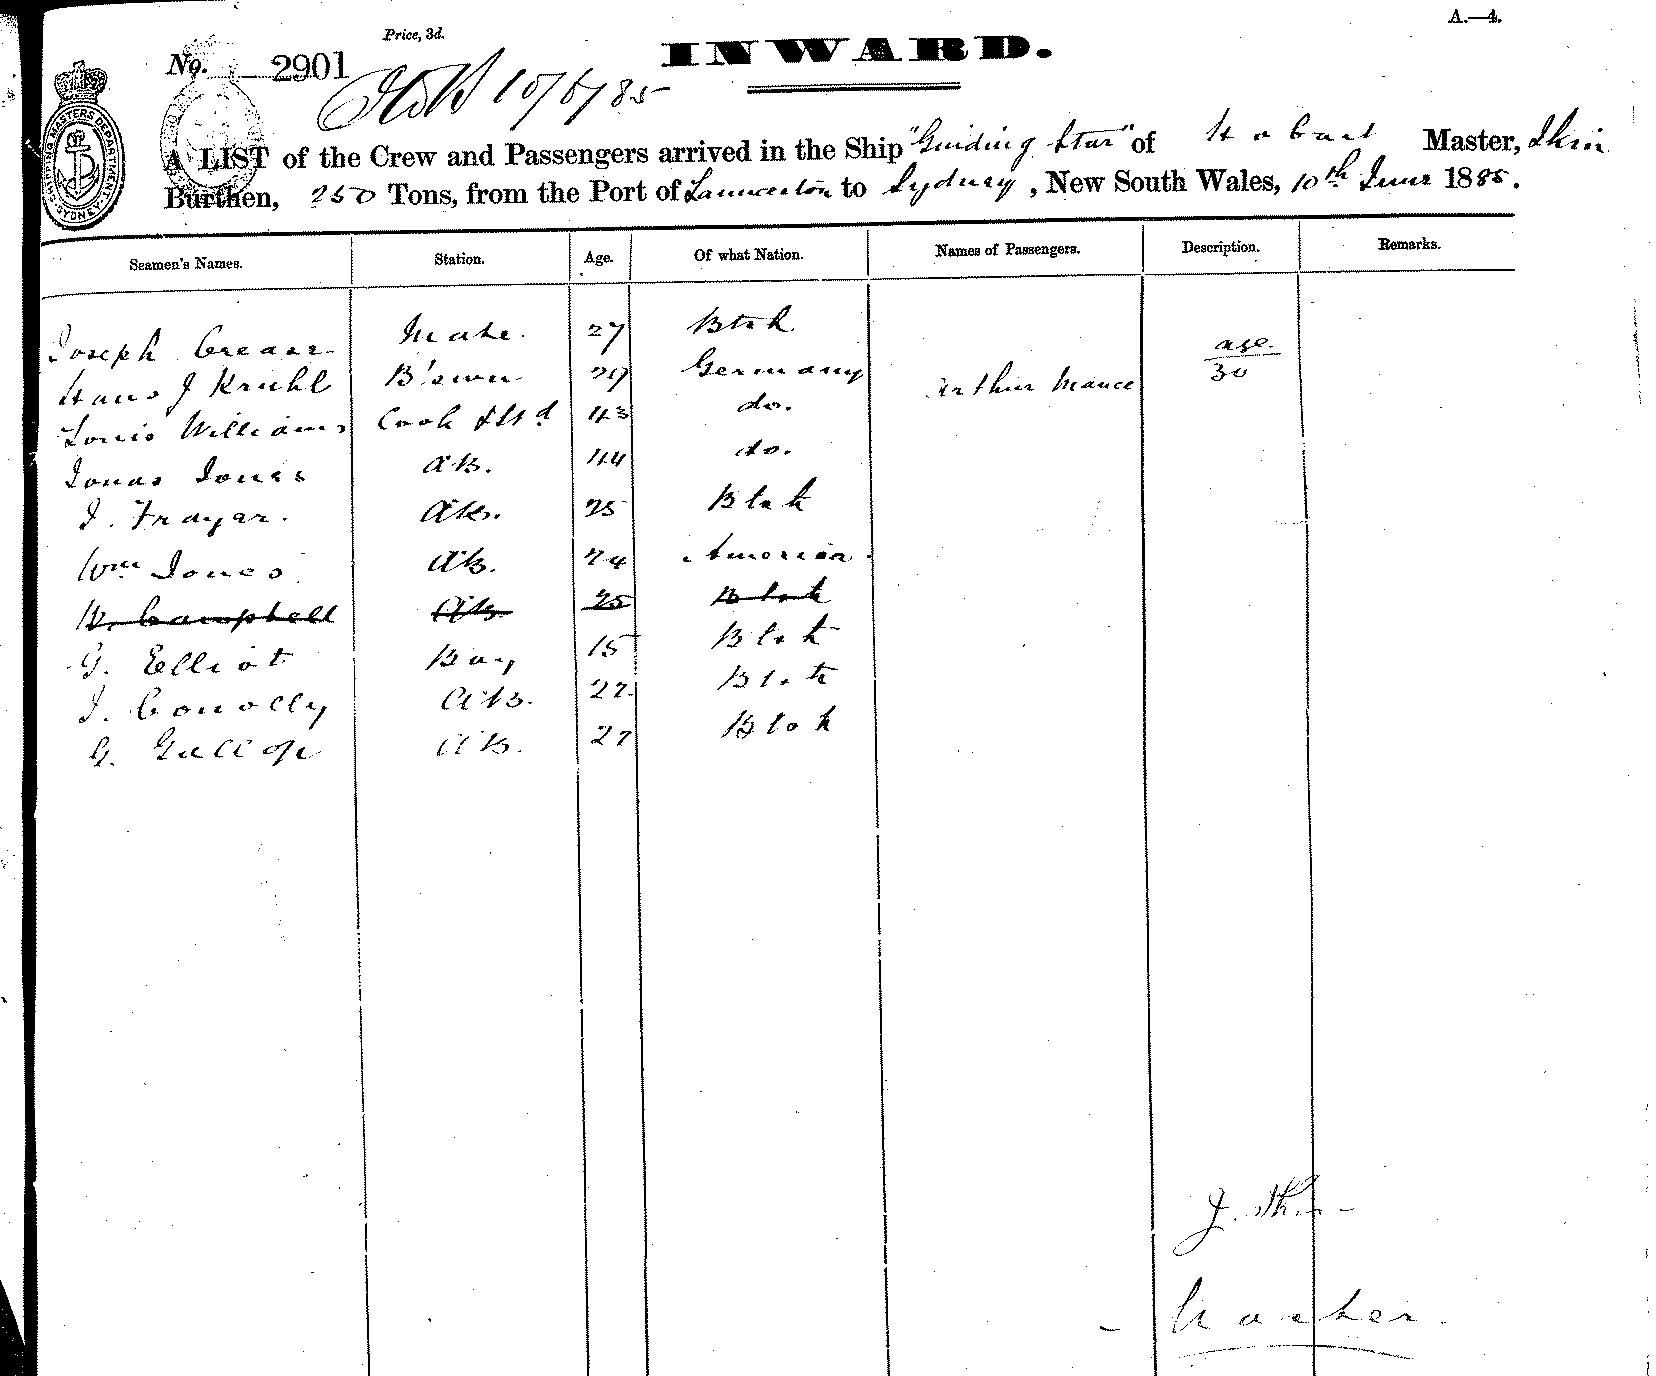 A.—4.
Price, 3d.
No. 2901
INWARD.
10/6/85
A LIST of the Crew and Passengers arrived in the Ship "Guiding Star" of Hobart Master,
Burthen, 250 Tons, from the Port of Launceston to Sydney, New South Wales, 10th June 1885.
Seamen's Names. Station. Age. Of what Nation. Names of Passengers. Description. Remarks.
Joseph Mate. 27 age
Hans J Kruhl B'swn 29 Germany Arthur Mance 30
Louis Williams Cook & Std 43 do.
Jonas Jones AB. 44 do.
J. Frayar. AB. 25
Wm Jones. AB. 24 America.
W. Campbell AB 25
G. Elliot Boy 15
J. Conolly AB. 22
G. Gallop AB. 27
Master.